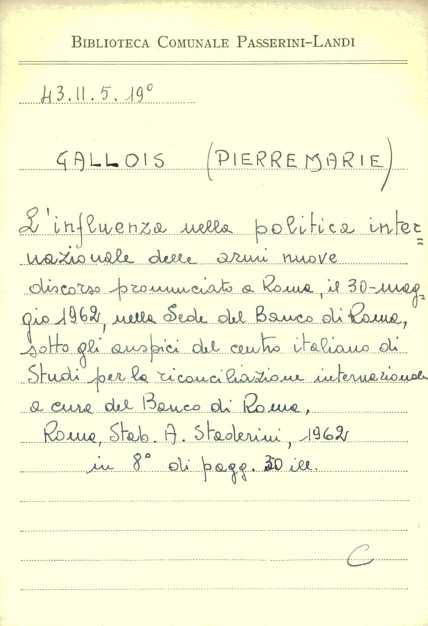 BIBLIOTECA COMUNALE PASSERINI-LANDI
43.II.5.19°
GALLOIS (PIERRE MARIE)
L'influenza nella politica inter=
nazionale delle armi nuove
discorso pronunciato a Roma, il 30-mag=
gio 1962, nella Sede del Banco di Roma,
sotto gli auspici del centro italiano di
Studi per la riconciliazione internazionale
a cura del Banco di Roma,
Roma, Stab. A. Staderini, 1962
in 8° di pagg. 30 ill.
C